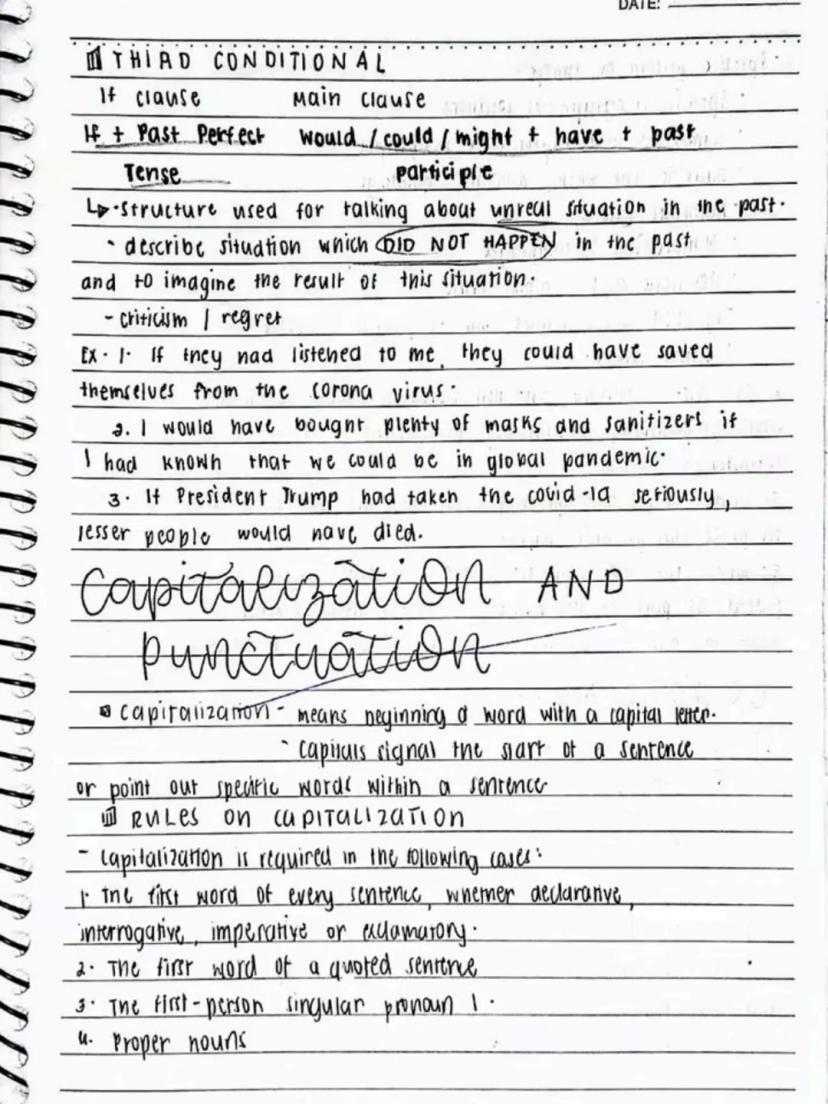 DATE:
THIRD CONDITIONAL
If clause Main clause
If + Past Perfect would / could / might + have + past
Tense participle
↳ · structure used for talking about unreal situation in the past.
- describe situation which DID NOT HAPPEN in the past
and to imagine the result of this situation.
- criticism / regret
Ex. 1. If they had listened to me, they could have saved
themselves from the corona virus.
2. I would have bought plenty of masks and sanitizers if
I had known that we could be in global pandemic.
3. If President Trump had taken the covid-19 seriously,
lesser people would have died.
Capitalization AND
punctuation
capitalization - means beginning a word with a capital letter.
- Capitals signal the start of a sentence
or point out specific words within a sentence
RULES ON CAPITALIZATION
- Capitalization is required in the following cases:
1. The first word of every sentence, whether declarative,
interrogative, imperative or exclamatory.
2. The first word of a quoted sentence
3. The first-person singular pronoun I.
4. Proper nouns